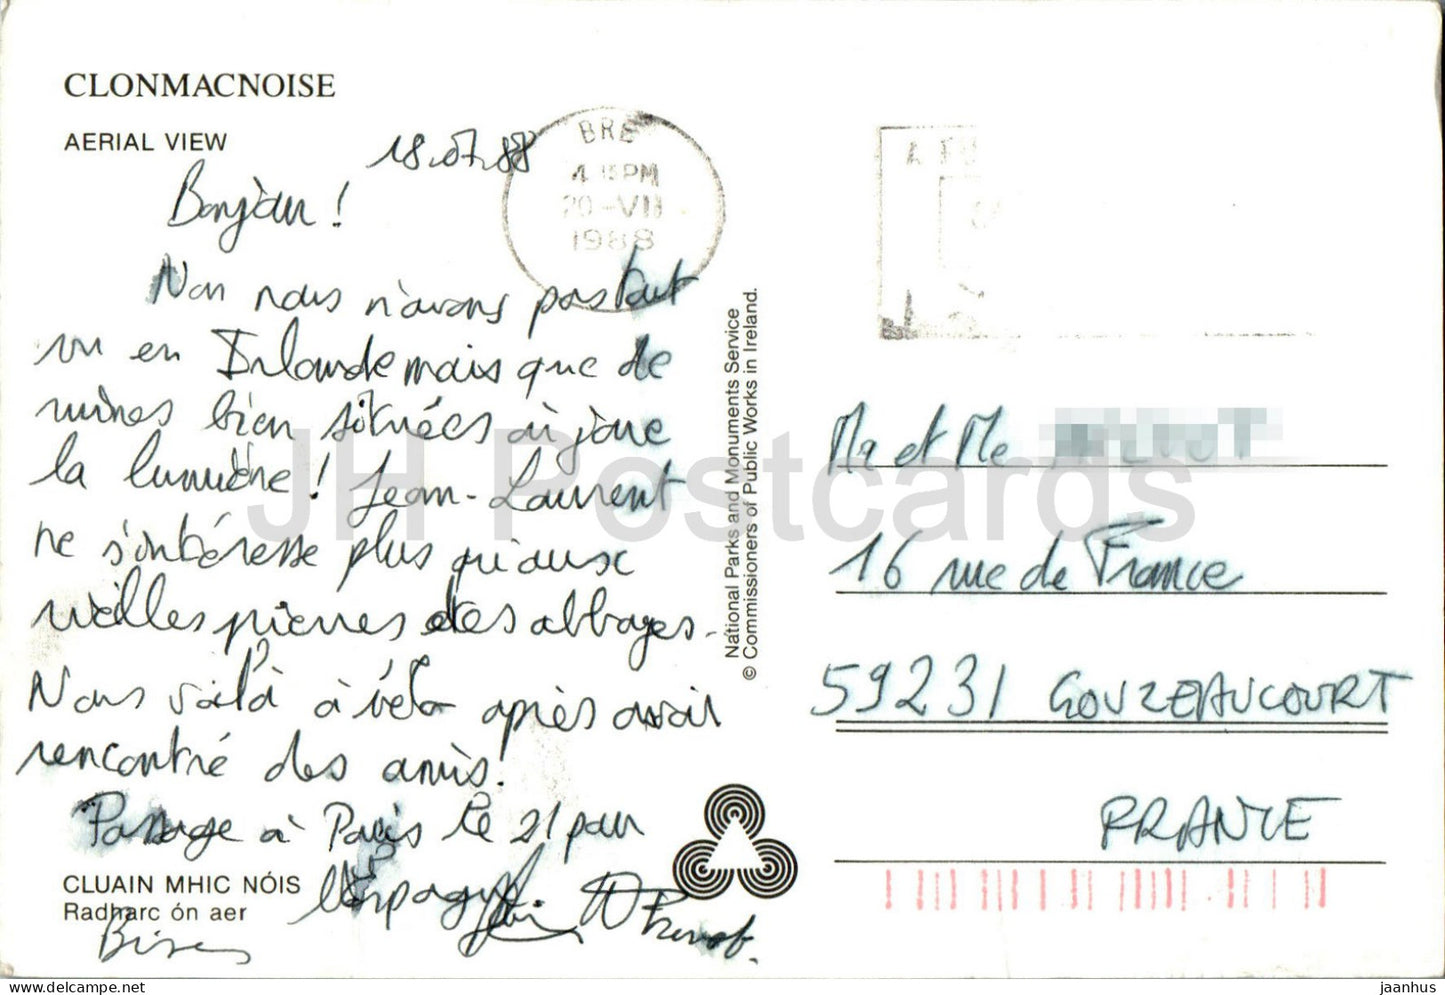 CLONMACNOISE
AERIAL VIEW
18.07.88
Bonjour !
Non nous n'avons pas tout
vu en Irlande mais que de
ruines bien situées où joue
la lumière ! Jean-Laurent
ne s'intéresse plus qu'aux
vieilles pierres et des abbayes.
Nous voilà à vélo après avoir
rencontré des amis.
Passage à Paris le 21 pour
l'Espagne
Bises
CLUAIN MHIC NÓIS
Radharc ón aer
BRE
4 15 PM
20-VII
1988
National Parks and Monuments Service
© Commissioners of Public Works in Ireland.
Mr et Me
16 rue de France
59231 GOUZEAUCOURT
FRANCE
JH Postcards
jaanhus